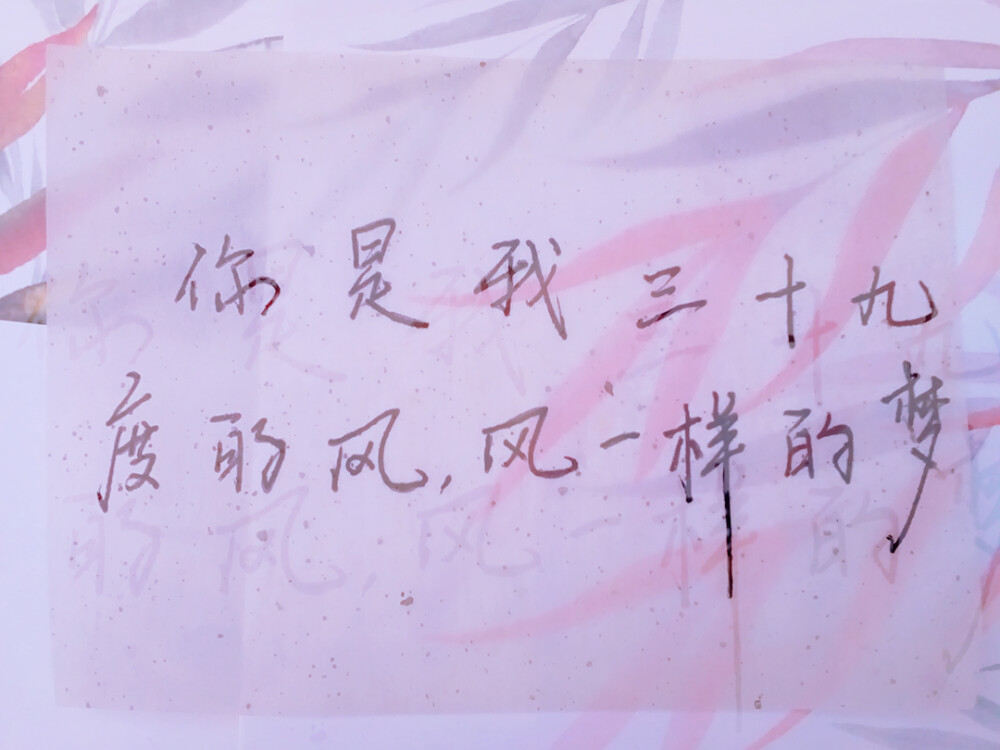 你是我三十九
度的风,风一样的梦